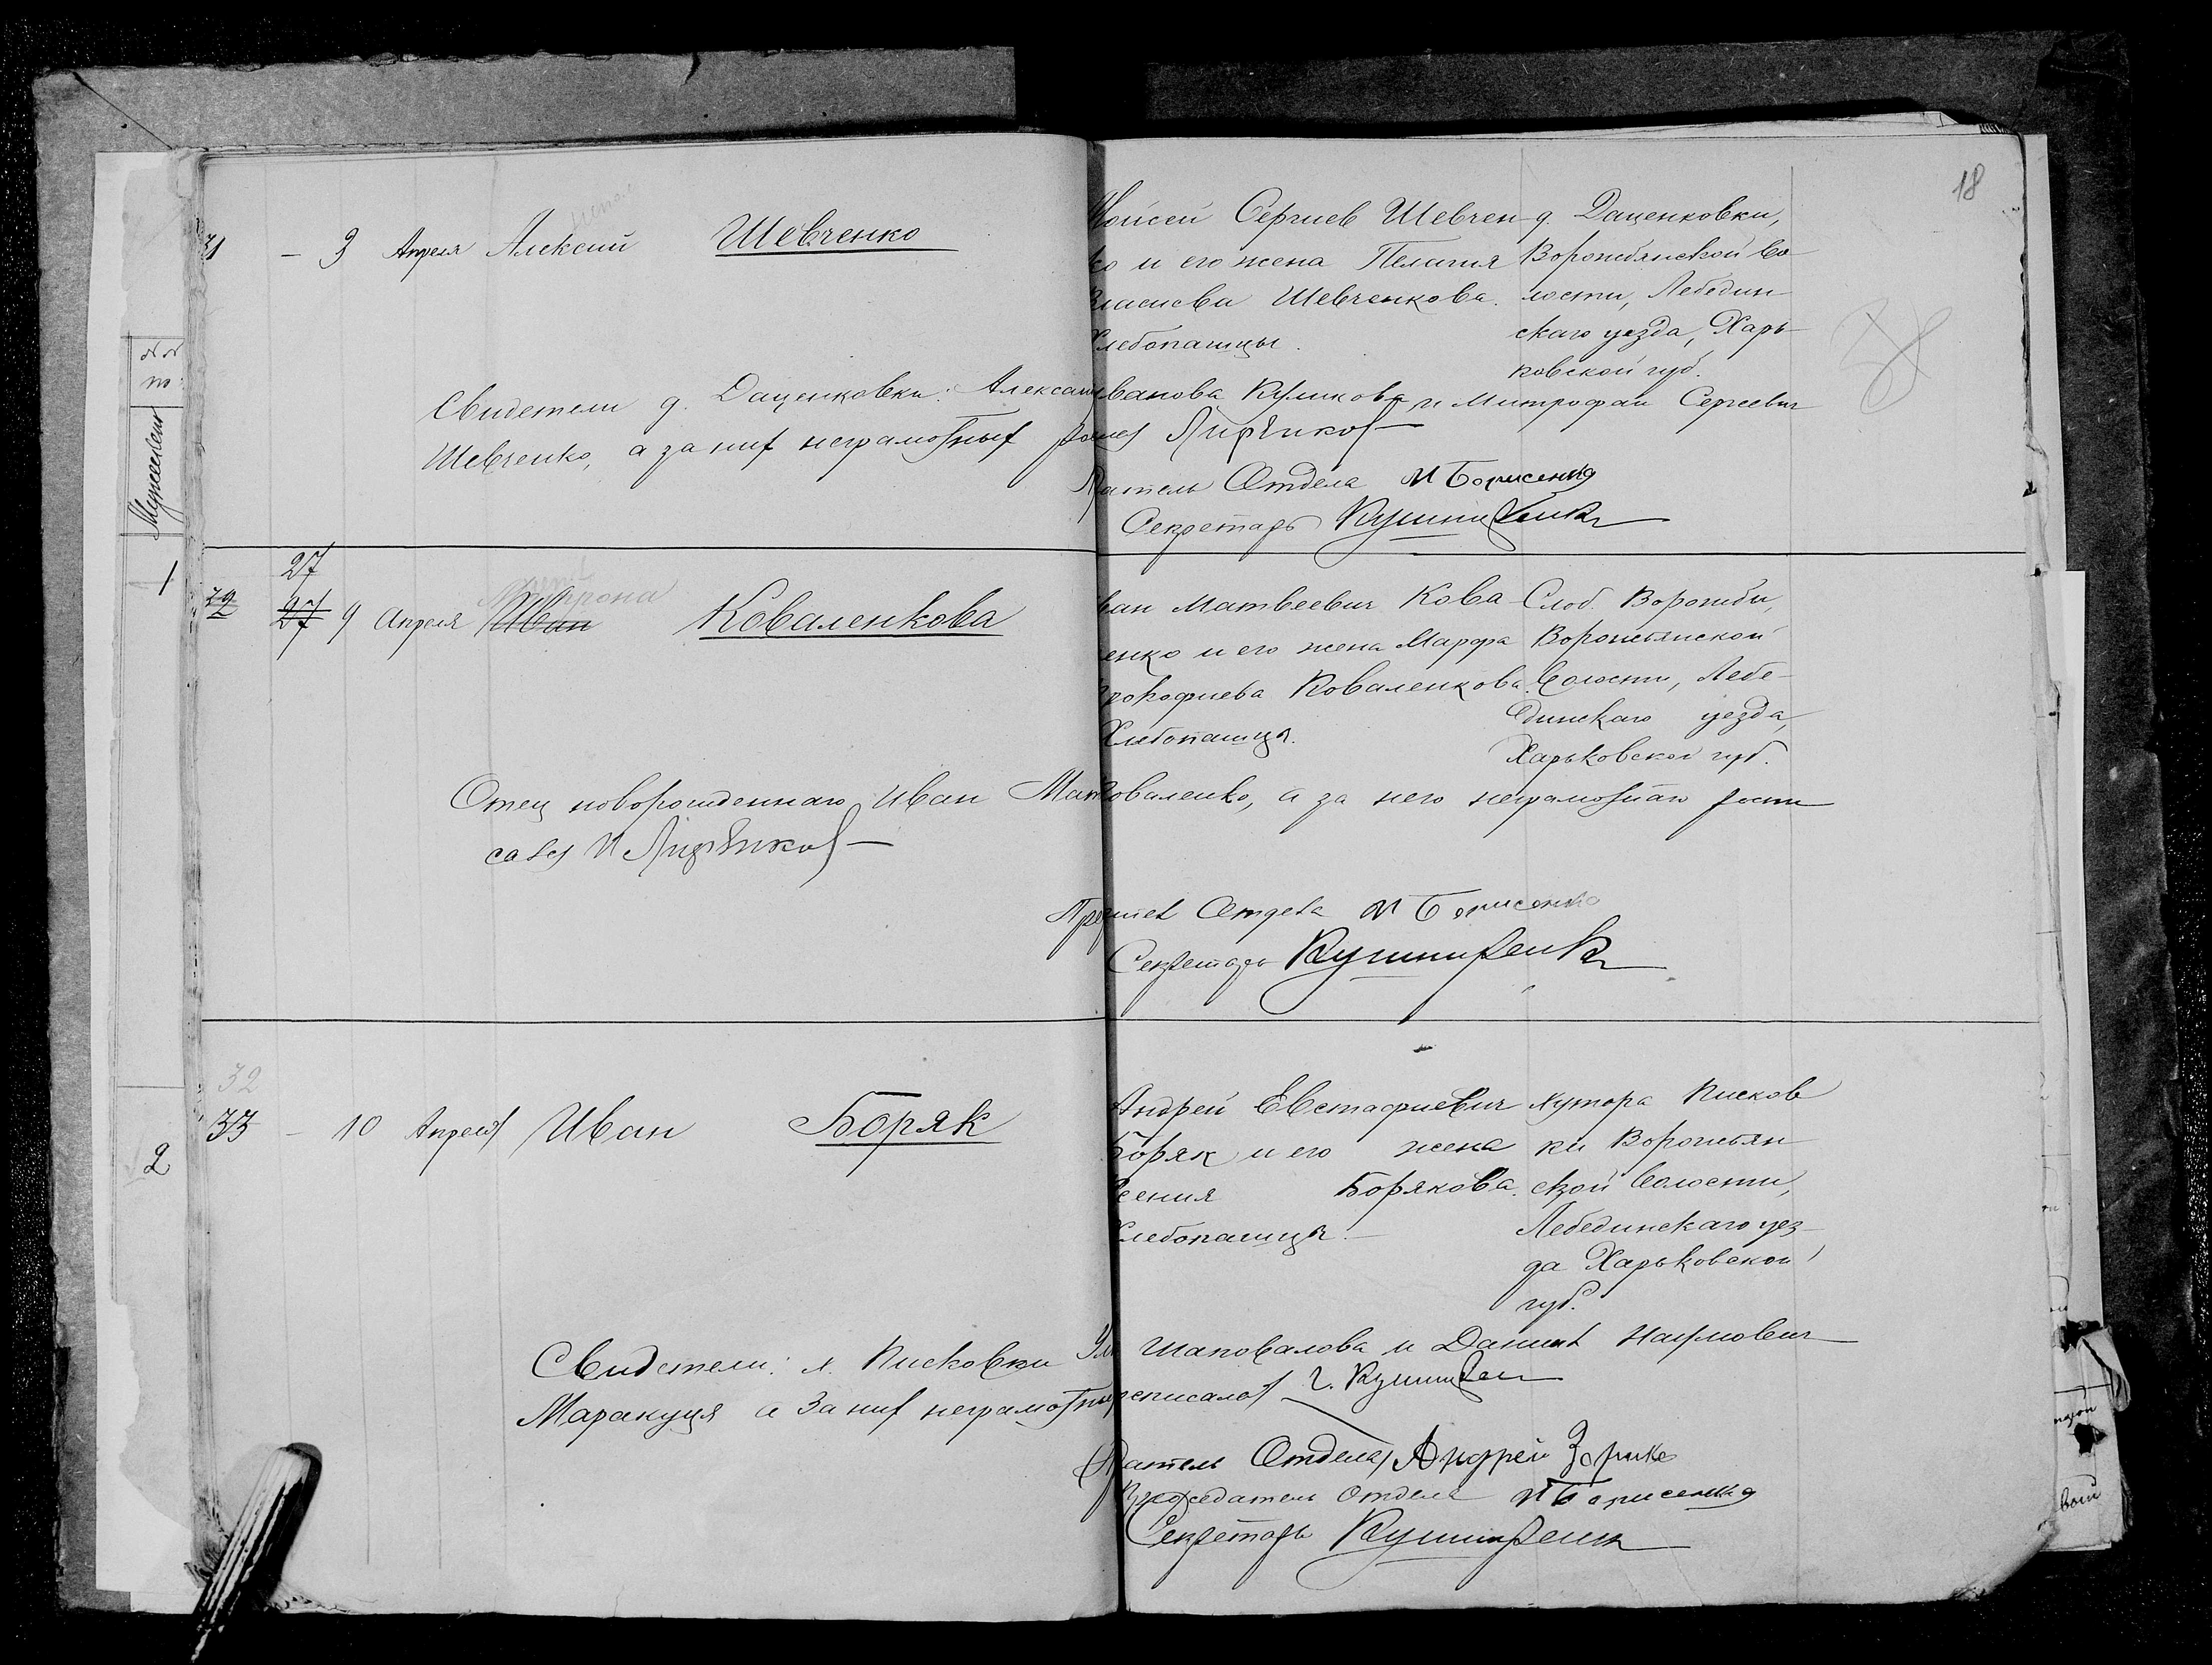 18
31 — 3 Апреля Алексий Шевченко
Мойсей Сергиев Шевчен-
ко и его жена Пелагия
Власиева Шевченкова.
Хлебопашцы.
д. Даценковки,
Ворожбянской во-
лости, Лебедин-
скаго уезда, Харь-
ковской губ.
Свидетели д. Даценковки: Алексан ванова Куликова и Митрофан Сергеевич
Шевченко, а за них неграмотных
датель Отдела И Борисенко
Секретарь Кушниренко
27
32 27 9 Апреля Иван Митрона Коваленкова
ван Матвеевич Кова-
енко и его жена Марфа
рокофиева Коваленкова.
Хлебопашцы.
Слоб. Ворожбы,
Ворожбянской
Волости, Лебе-
динскаго уезда,
Харьковской губ.
Отец новорожденнаго Иван Мат Коваленко, а за него неграмотнаго
Отдела И Борисенко
Секретарь Кушниренко
32
33 — 10 Апреля Иван Боряк
Андрей Евстафиевич
Боряк и его жена
сения Борякова.
Хлебопашцы.
хутора Писков
ки Ворожбян
ской Волости,
Лебединскаго уез-
да Харьковской
губ.
Свидетели: х. Писковки Ул Шаповалова и Даниил Наумович
Маракуця а за них неграмотных росписался Г. Кушнирен
датель Отдела Андрей Зорико
Председатель Отдела И Борисенко
Секретарь Кушниренк
№ №
по
Мужескаго
1
2